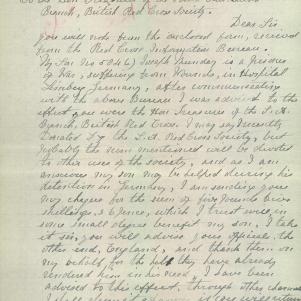 Branch, British Red Cross Society.
Dear Sir
you will note from the enclosed form, received
from the Red Cross Information Bureau.
My Son No 504 Joseph is a prisoner
of War, suffering from Wounds, in Hospital
Germany, after communicating
with the above Bureau I was advised to the
effect you were the Hon Treasurer of the S.A.
Branch, British Red Cross. I may say recently
Donated £ to the S.A. Red Cross Society, but
probably the sum mentioned will be devoted
to other uses of the society, and as I am
anxious my son may be helped during his
detention in Germany, I am sending you
my cheque for the sum of five Pounds five
shillings & 6 pence, which I trust will in
some small degree benefit my son, I take
it Sir, you will advise your officers, the
other end, England, and thank them on
my behalf for the help they have already
rendered him in his need, I have been
advised to this effect, through other channels
I shall